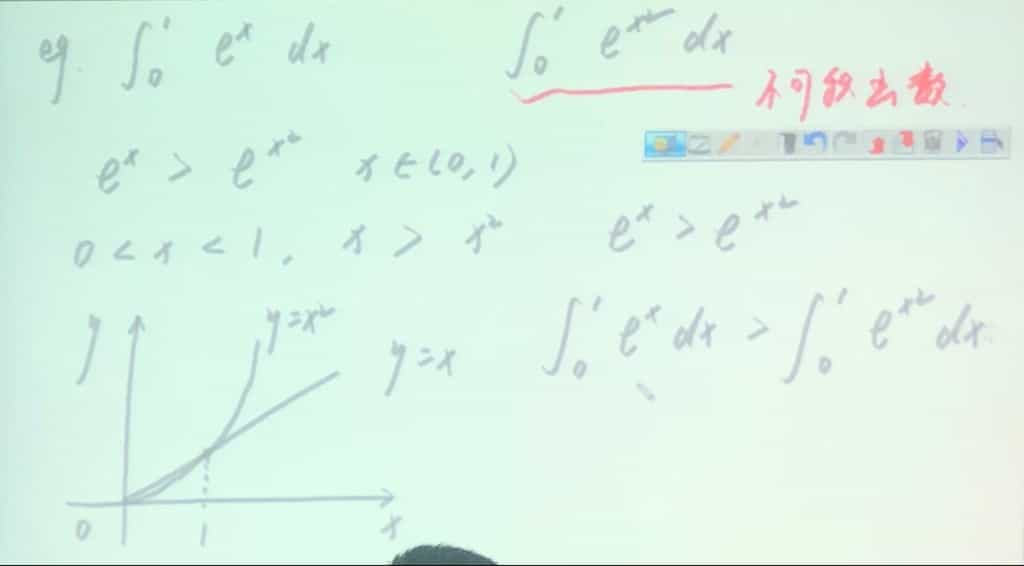 eg. ∫₀¹ eˣ dx ∫₀¹ e^{x²} dx
不可积函数.
eˣ > e^{x²} x ∈ (0, 1)
0 < x < 1, x > x² eˣ > e^{x²}
∫₀¹ eˣ dx > ∫₀¹ e^{x²} dx.
y
y=x²
y=x
0 1 x